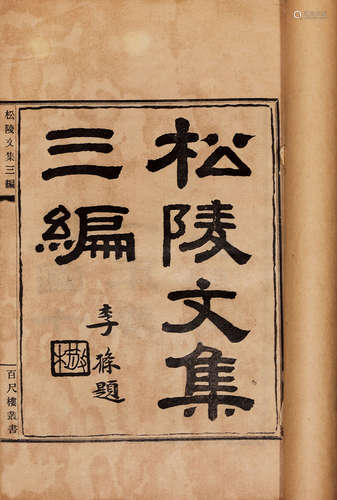 松陵文集
三編
李滌題
松陵文集三編
百尺樓叢書